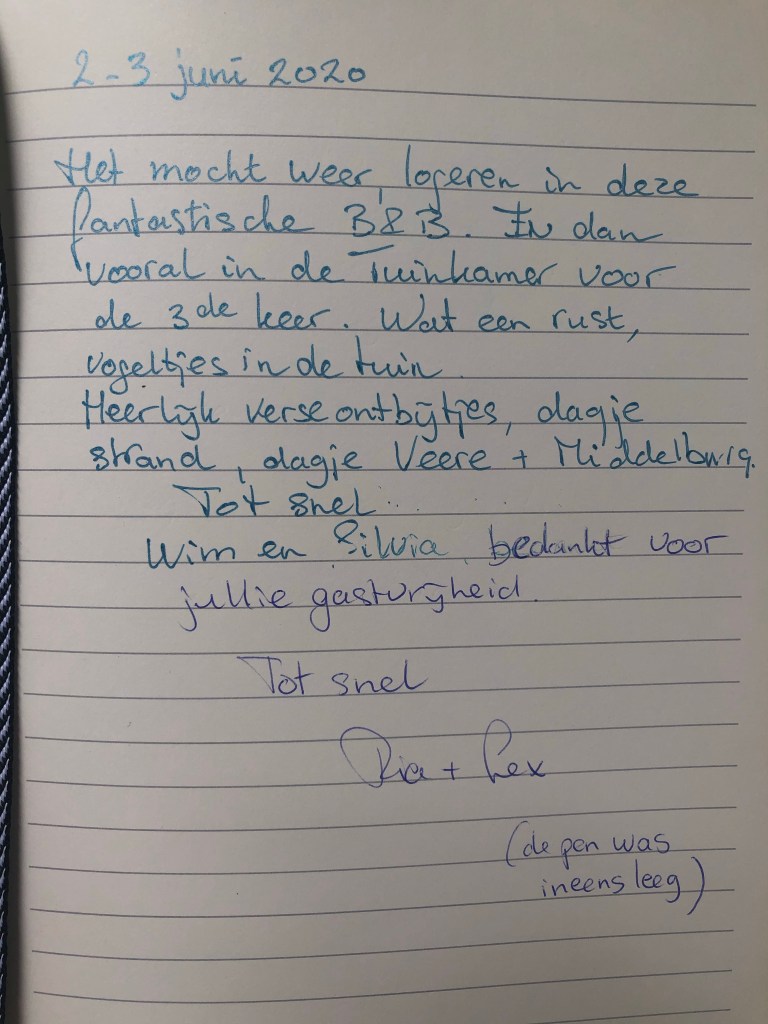 2-3 juni 2020
Het mocht weer, logeren in deze
fantastische B&B. En dan
vooral in de Tuinkamer voor
de 3de keer. Wat een rust,
vogeltjes in de tuin.
Heerlijk verse ontbijtjes, dagje
strand, dagje Veere + Middelburg.
Tot snel...
Wim en Silvia, bedankt voor
jullie gastvrijheid.
Tot snel
Ria + Lex
(de pen was
ineens leeg)